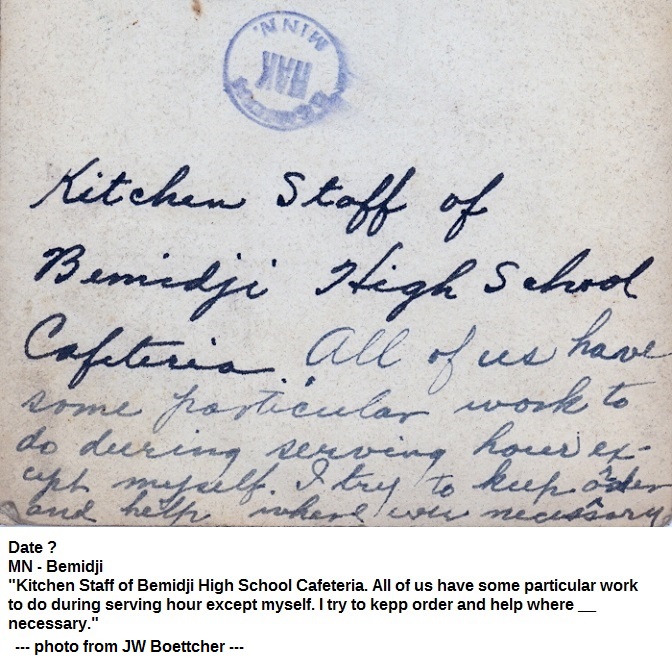 MINN.
Kitchen Staff of
Bemidji High School
Cafeteria. All of us have
some particular work to
do during serving hour ex-
cept myself. I try to keep order
and help where necessary
Date ?
MN - Bemidji
"Kitchen Staff of Bemidji High School Cafeteria. All of us have some particular work
to do during serving hour except myself. I try to kepp order and help where __
necessary."
--- photo from JW Boettcher ---